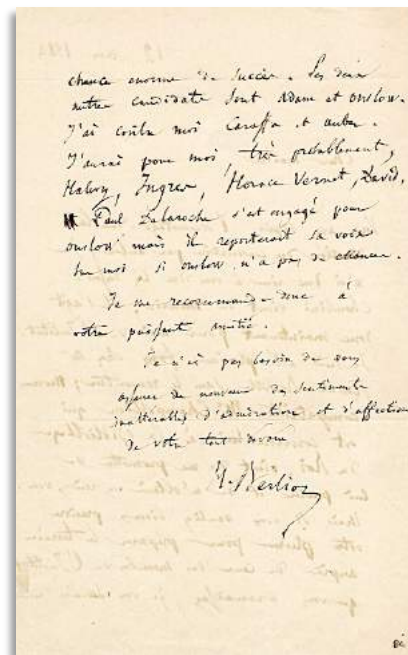 chance enorme de succès. Les deux
autres candidats sont Adam et onslow.
J'ai contre moi Caraffa et auber.
J'aurai pour moi, très probablement,
Halevy, Ingres, Horace Vernet, David.
Paul Delaroche s'est engagé pour
onslow mais il reporterait sa voix
sur moi si onslow n'a pas de chances.
Je me recommande donc à
votre puissante amitié.
Je n'ai pas besoin de vous
assurer de nouveau des sentiments
inaltérables d'admiration et d'affection
de votre tout dévoué
H. Berlioz